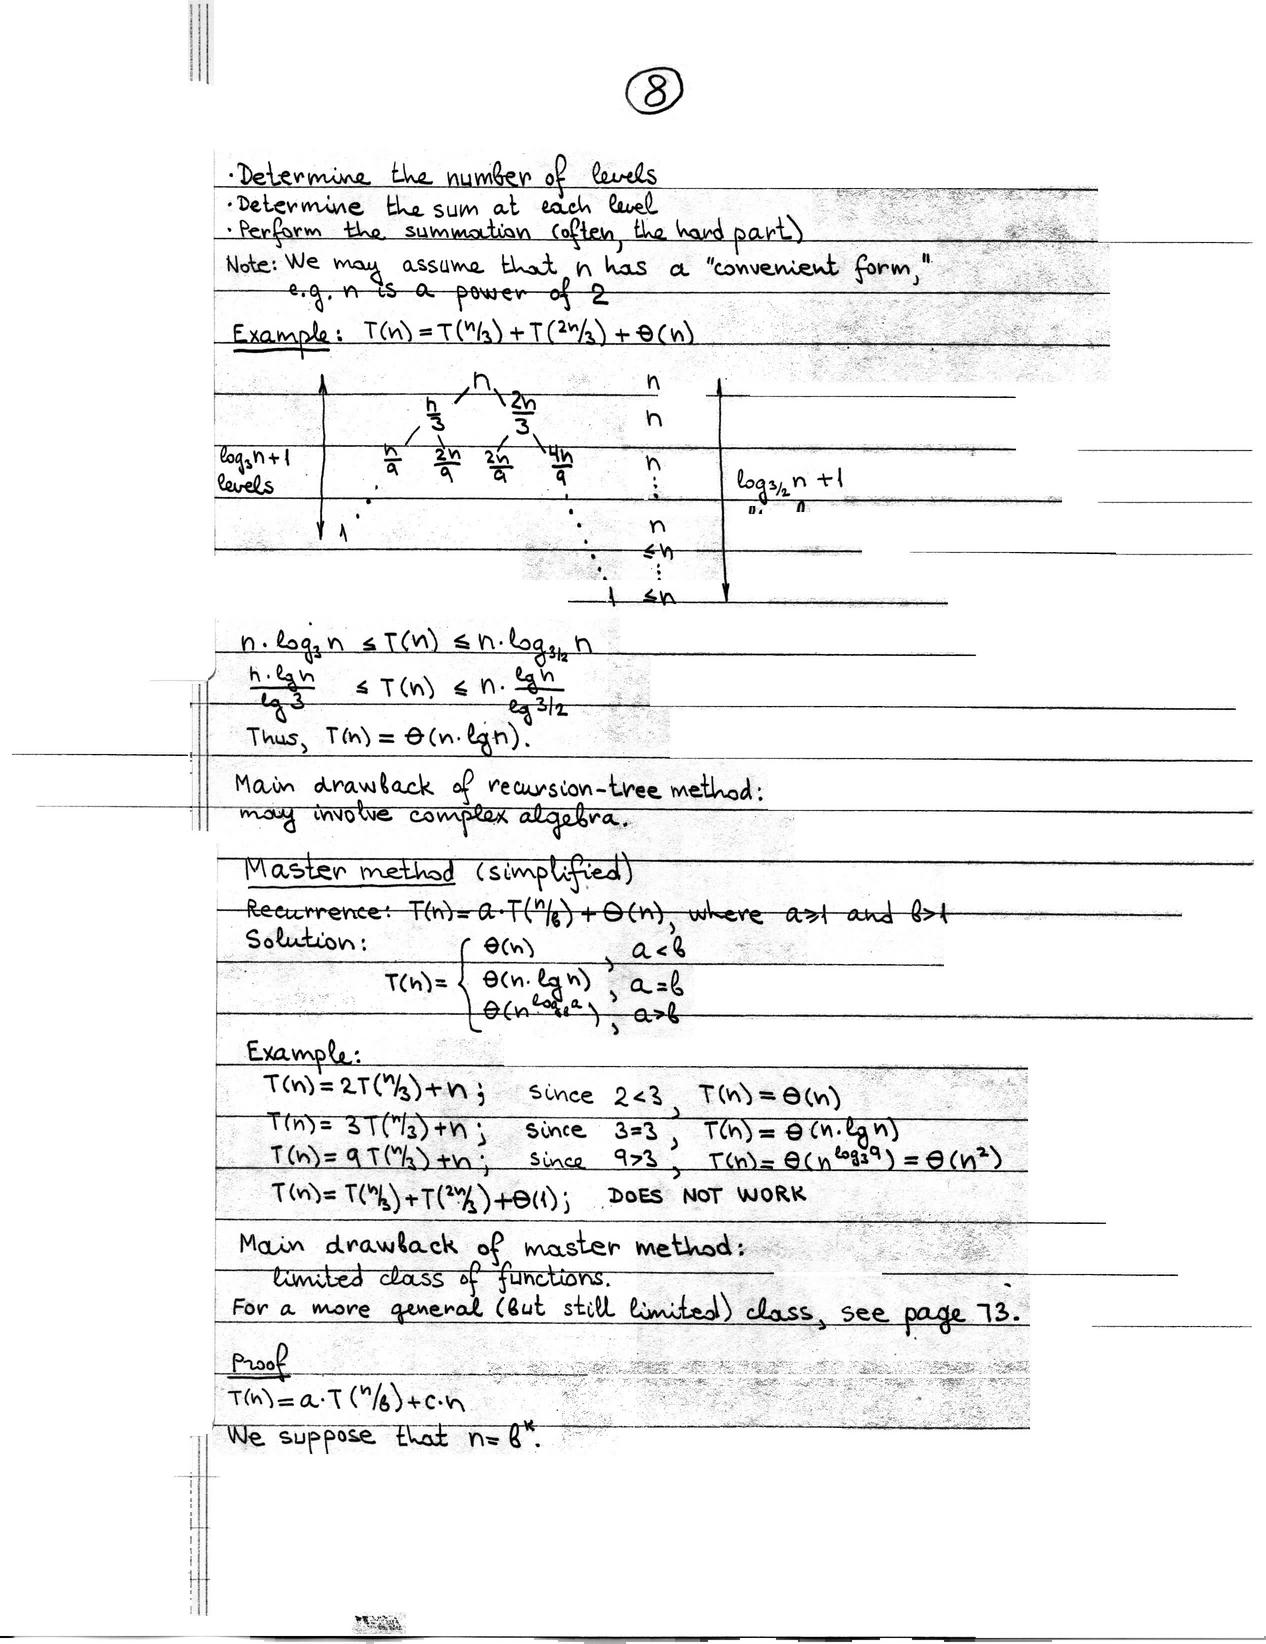 8
· Determine the number of levels
· Determine the sum at each level
· Perform the summation (often, the hard part)
Note: We may assume that n has a "convenient form,"
e.g. n is a power of 2
Example: T(n) = T(n/3) + T(2n/3) + Θ(n)
n n
n/3 2n/3 n
n/9 2n/9 2n/9 4n/9 n
log₃n+1 levels
log₃/₂ n +1
1 n
≤n
1 ≤n
n · log₃n ≤ T(n) ≤ n · log₃/₂ n
n · lg n / lg 3 ≤ T(n) ≤ n · lg n / lg 3/2
Thus, T(n) = Θ(n · lg n).
Main drawback of recursion-tree method:
may involve complex algebra.
Master method (simplified)
Recurrence: T(n) = a · T(n/b) + Θ(n), where a≥1 and b>1
Solution:
T(n) = { Θ(n) , a < b
Θ(n · lg n) , a = b
Θ(n^(log_b a)) , a > b
Example:
T(n) = 2T(n/3) + n; since 2<3, T(n) = Θ(n)
T(n) = 3T(n/3) + n; since 3=3, T(n) = Θ(n · lg n)
T(n) = 9T(n/3) + n; since 9>3, T(n) = Θ(n^(log₃9)) = Θ(n²)
T(n) = T(n/3) + T(2n/3) + Θ(1); DOES NOT WORK
Main drawback of master method:
limited class of functions.
For a more general (but still limited) class, see page 73.
Proof
T(n) = a · T(n/b) + c · n
We suppose that n = b^k.